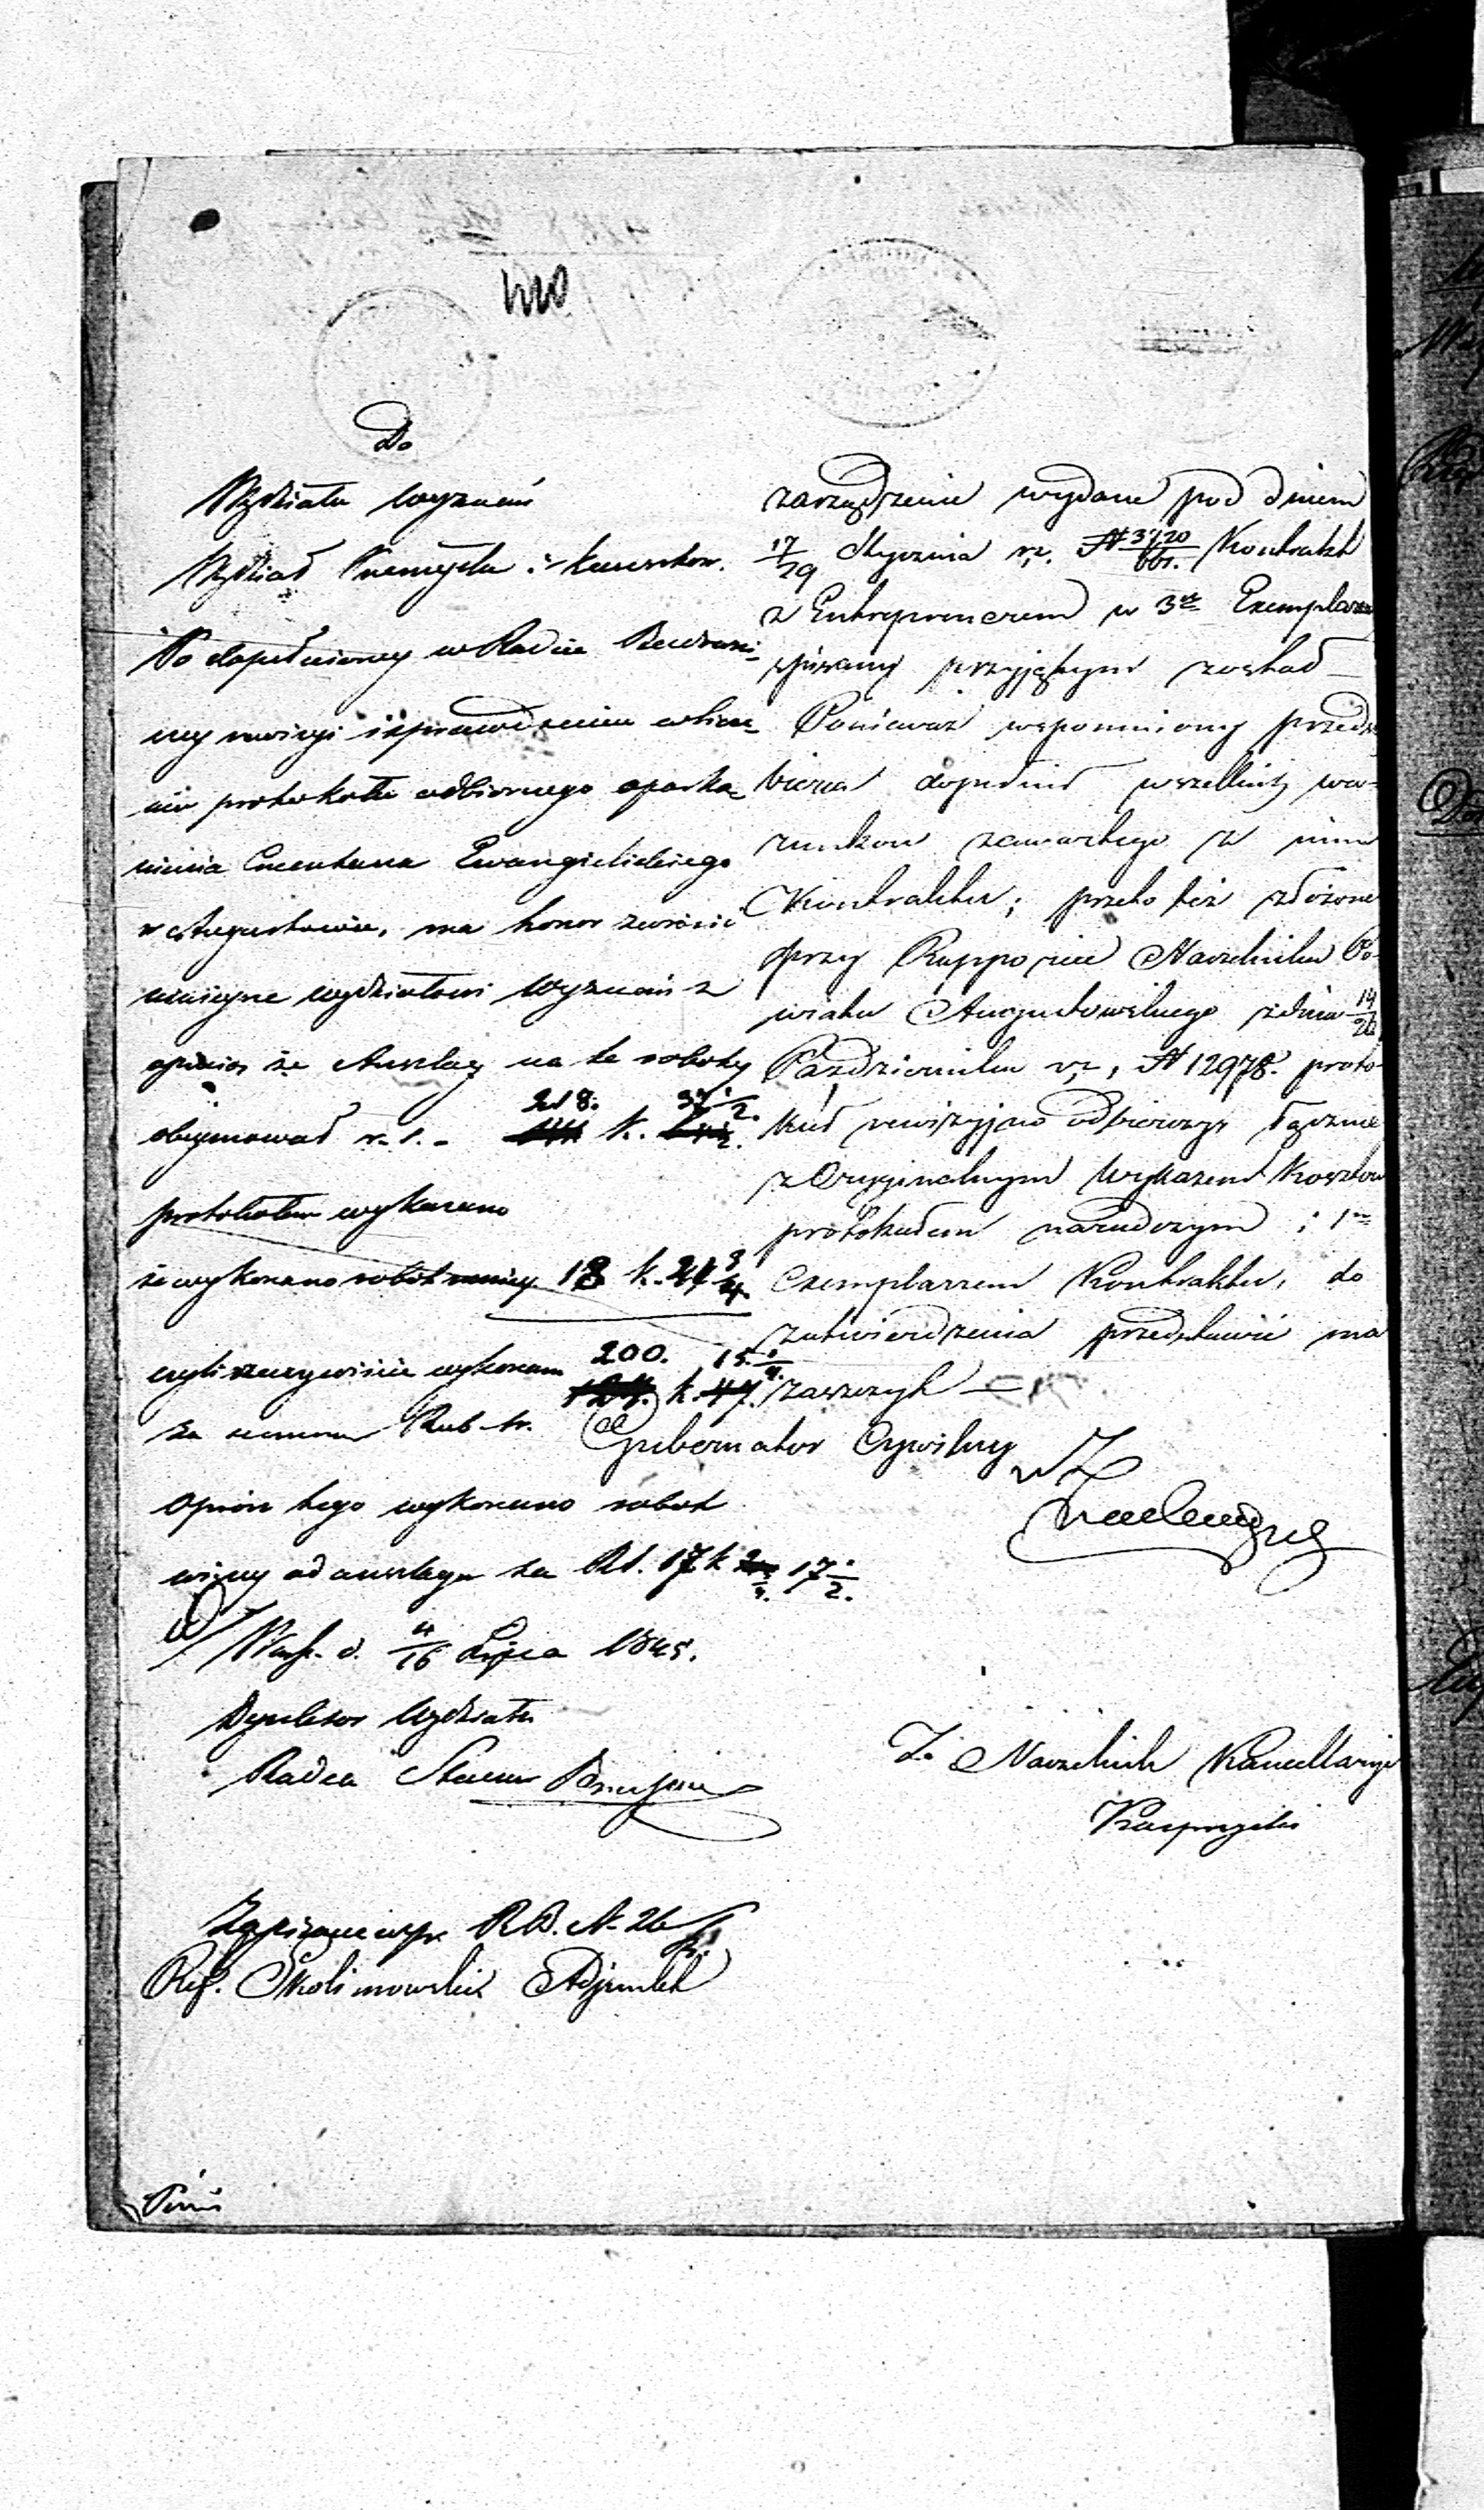 Do
Wydziału Wyznań
Wydział Przemysłu i Kunsztów.
Po dopełnioney w Radzie Budowni-
czey rewizyi i sprawdzeniu
protokółu odbiorczego oparka-
nienia Cmentarza Ewangielickiego
w Augustowie, ma honor zwrócić
niniejsze Wydziałowi Wyznań z
opinią że Anszlag na te roboty
obejmował r. s. - 218. k. 37 1/2.
protokółem wykazano
że wykonano robót mniey 18 k. 3/4.
czyli rzeczywiście wykonano
za summę Rub. sr. 200. k. 15 1/4.
oprócz tego wykonano robót
więcey od anszlagu za Rs. 17 k 17 1/2.
Warsz. d. 4/16 Lipca 1845.
Dyrektor Wydziału
Radca Stanu
Zapisane w RB. N. 26
Ref. Skolimowski Adjunkt
zarządzenie wydane pod dniem
17/29 Stycznia r. z. N Kontrakt
z Entreprenerem w 3ch Exemplarzach
spisany przyjętym został —
Ponieważ wspomniony przedsię-
bierca dopełnił wszelkich wa-
runków zawartego z nim
Kontraktu; przeto też złożone
przy Rapporcie Naczelnika Po-
wiatu Augustowskiego z dnia 14/26
Października r. z. N 12978. proto-
kuł rewizyjno odbiorczy łącznie
z Oryginalnym Wykazem Kosztów
protokułem i 1m
Exemplarzem Kontraktu, do
zatwierdzenia przedstawić ma
zaszczyt —
Gubernator Cywilny
wZ
Z. Naczelnik Kancellaryi